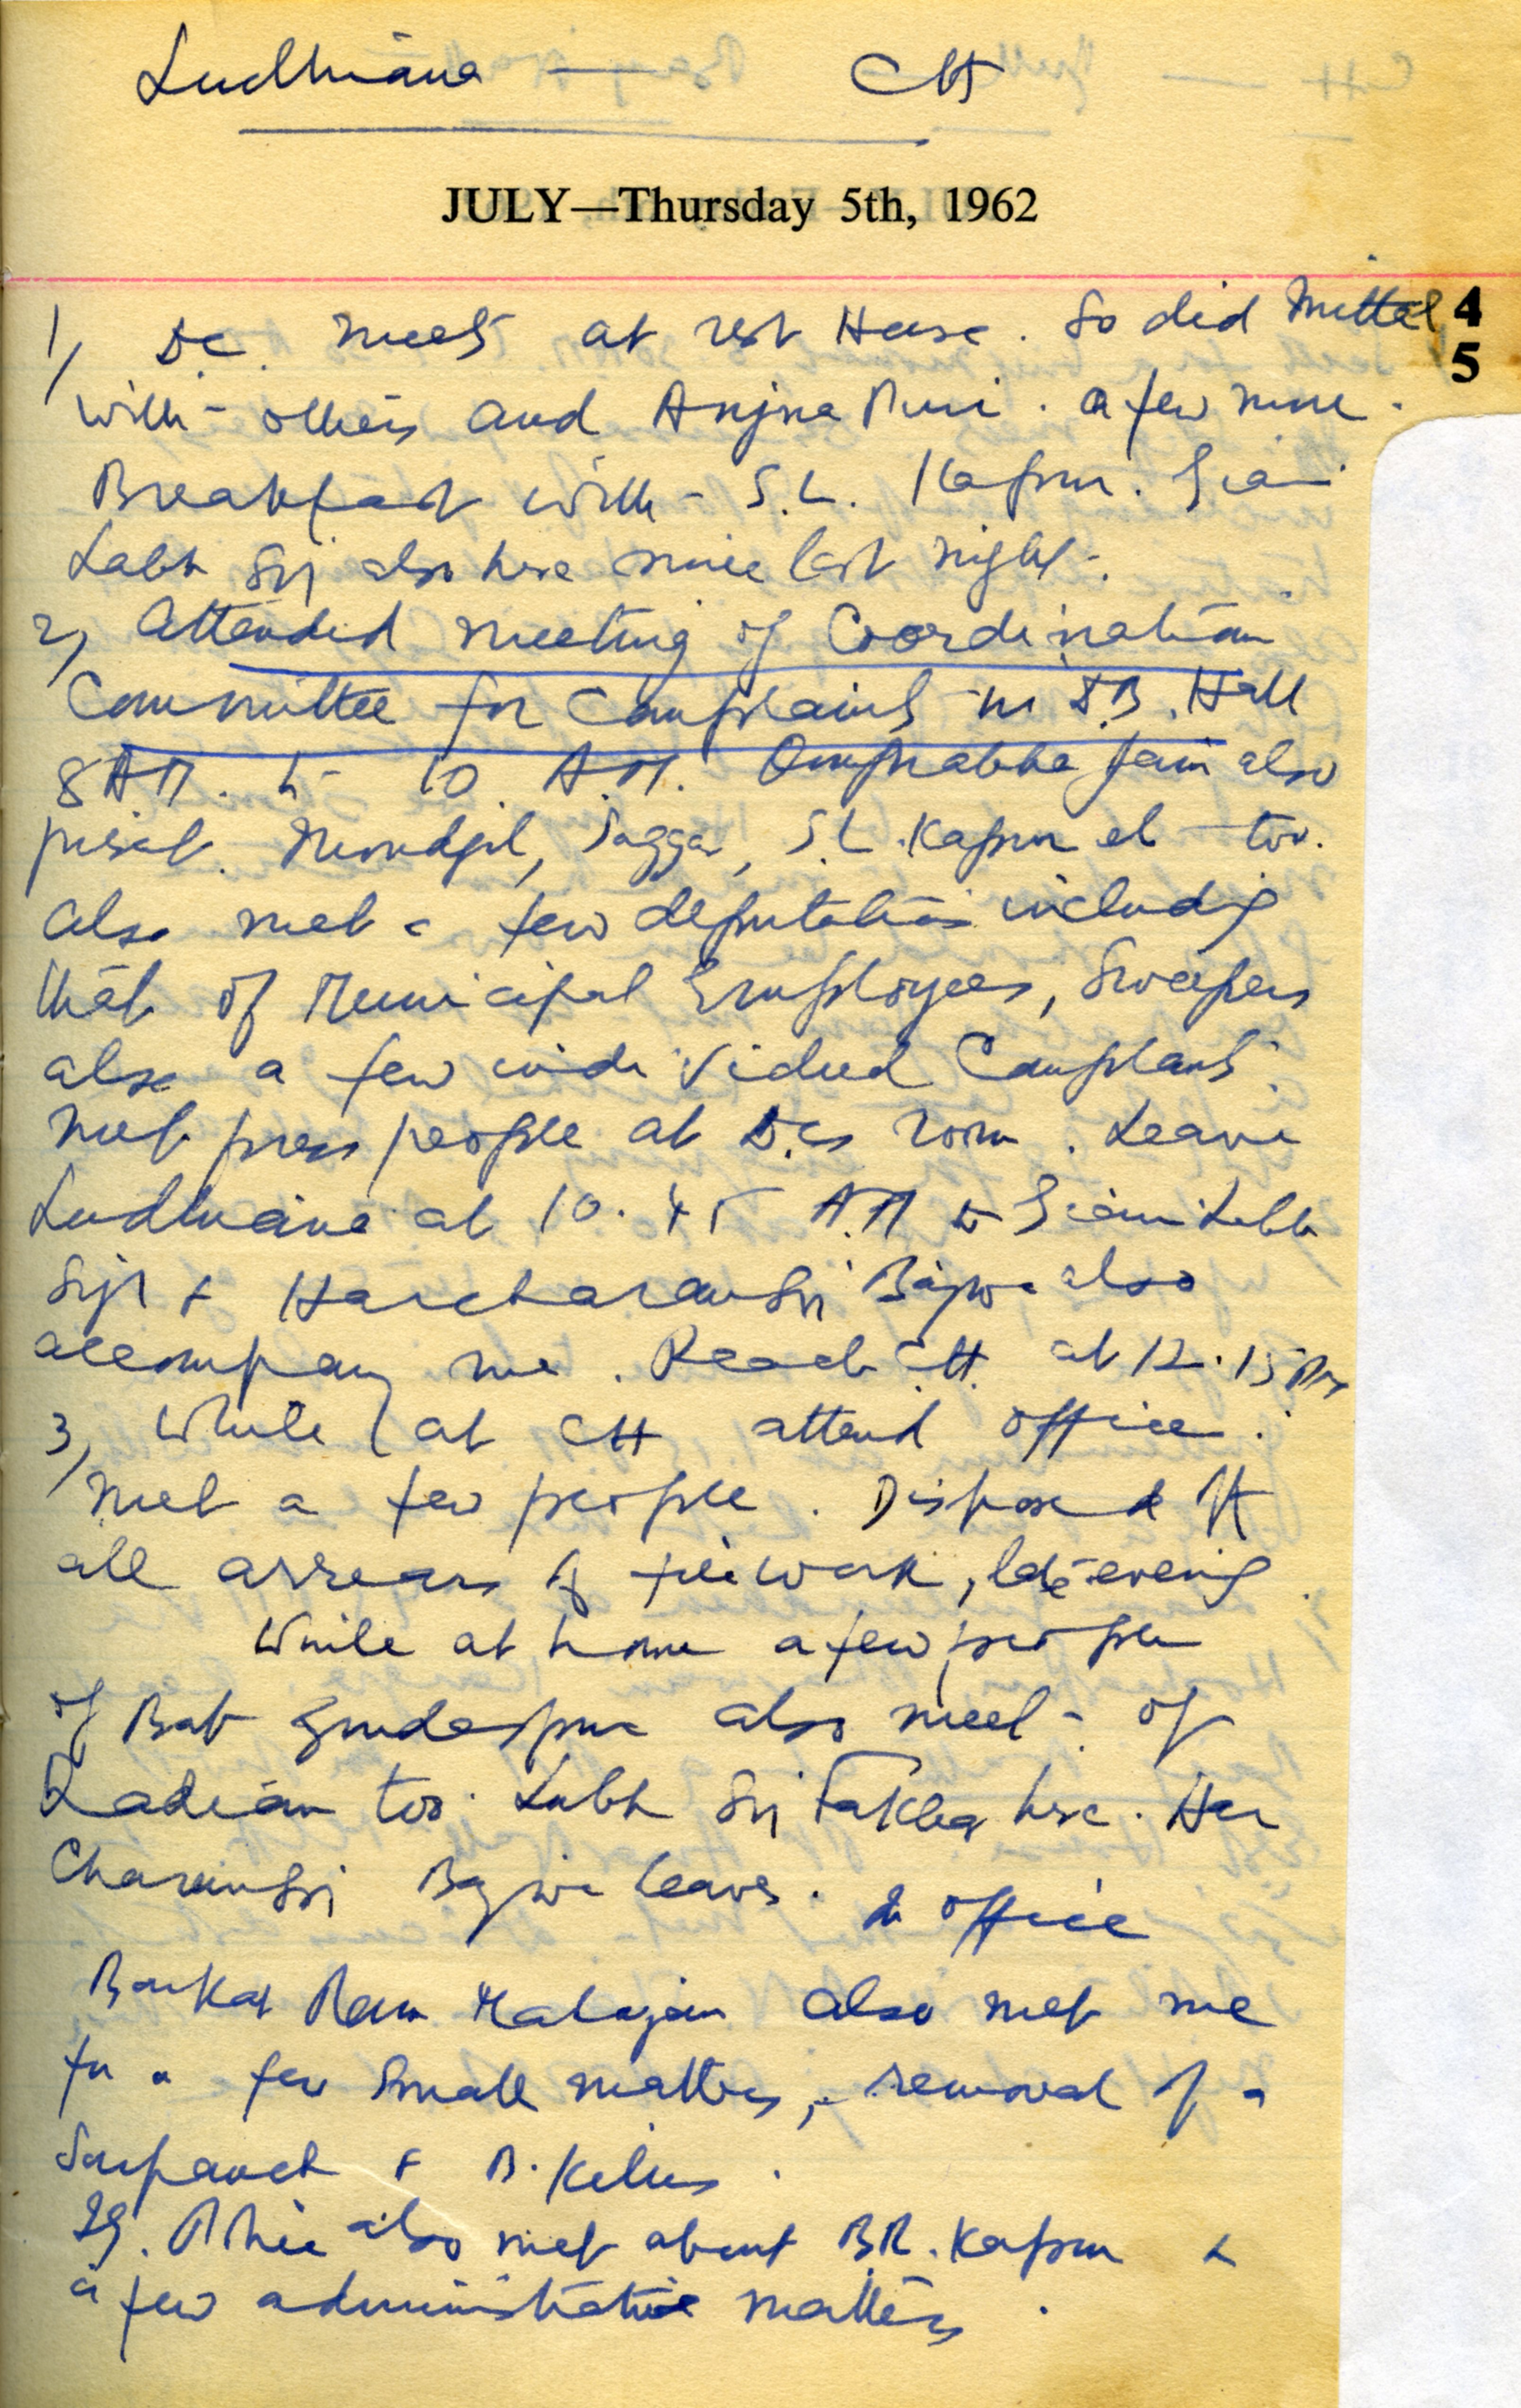 Ludhiana — CH
JULY—Thursday 5th, 1962
4
5
1, D.C. meets at rest House. So did Mittal
with others and Anjna Puri. a few more.
Breakfast with S.L. Kapur. Giani
Labh Sgh also here since last night.
2, Attended meeting of Coordination
Committee for Complaints in D.B. Hall
8 A.M. to 10 A.M. Omprabha Jain also
present. Moudgil, Saggar, S.L. Kapur etc too.
Also met a few deputations including
that of Municipal Employees, Sweepers
also a few individual Complaints.
Met press people at D.Cs room. Leave
Ludhiana at 10.45 A.M Giani Labh
Sgh & Harcharan Sgh Bajwa also
accompany me. Reach CH. at 12.15 PM
3, While at CH attend office.
Met a few people. Disposed off
all arrears of file work, late evening.
While at home a few people
of Bat Gurdaspur also meet. of
Qadian too. Labh Sgh here. Har
Charan Sgh Bajwa leaves. In office
Barkat Ram Mahajan also met me
for a few small matters, removal of a
Sarpanch &
IG. Police also met about B.R. Kapur &
a few administrative matters.